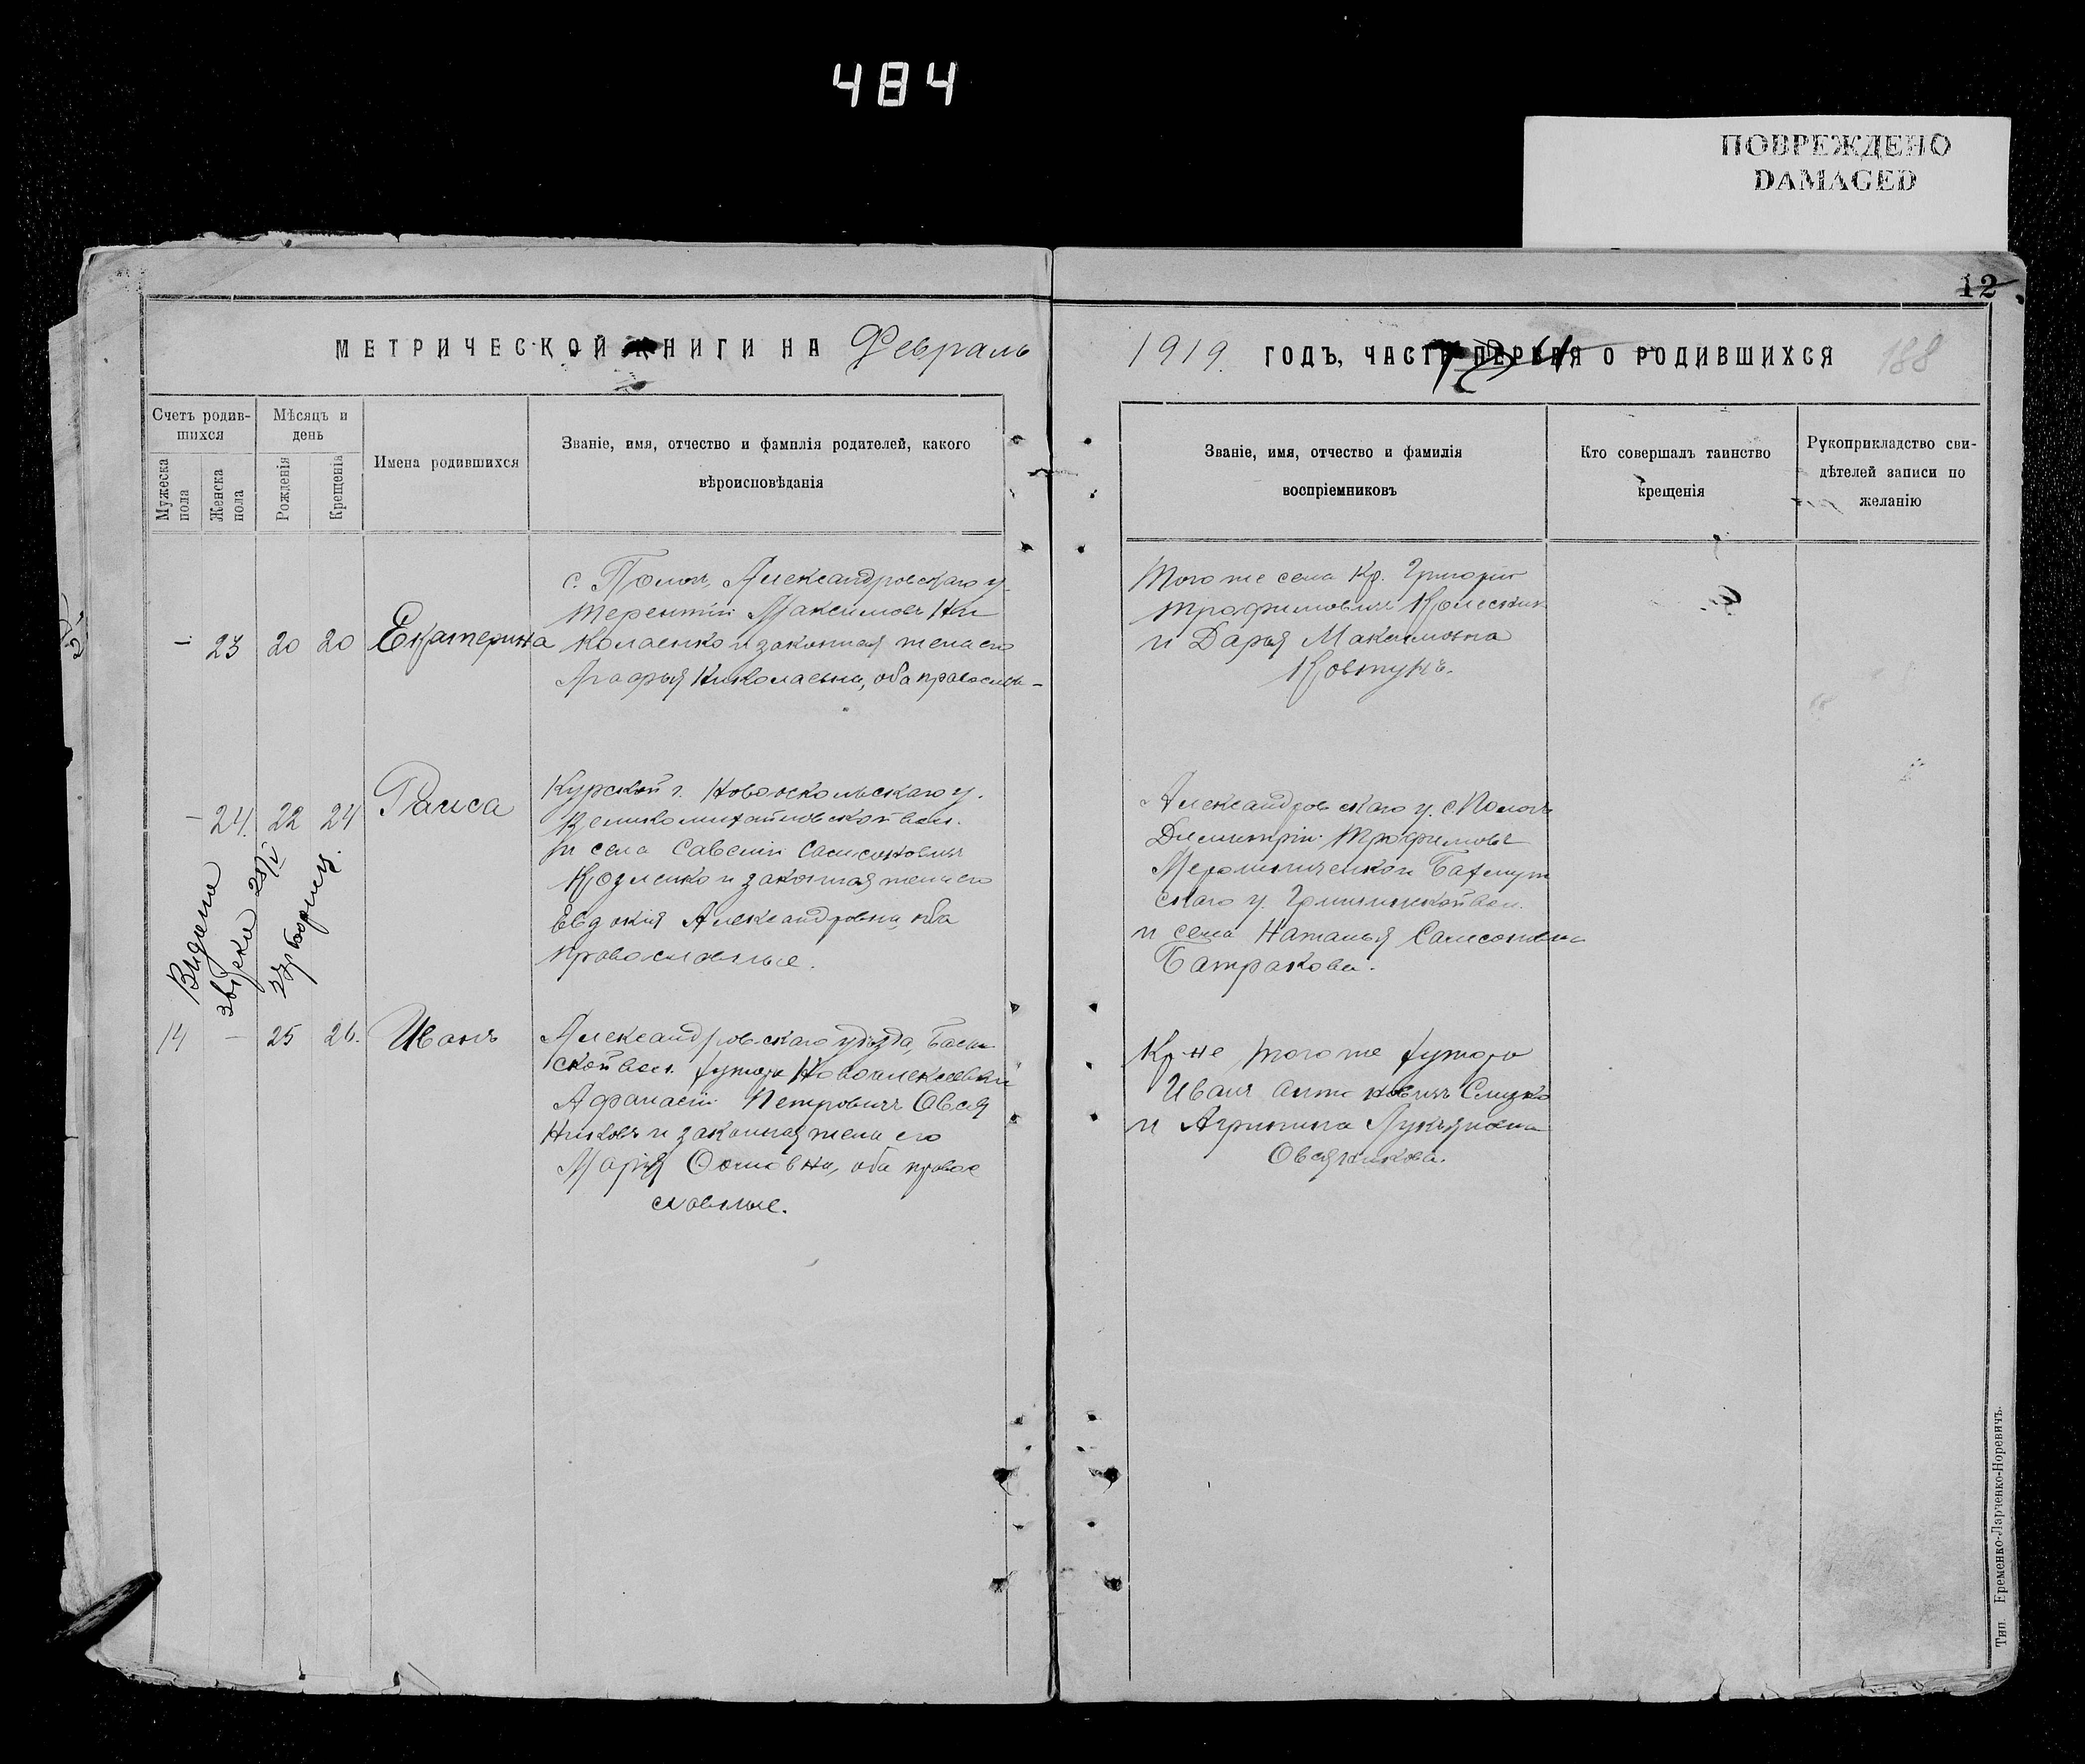 484
ПОВРЕЖДЕНО
DAMAGED
12
МЕТРИЧЕСКОЙ КНИГИ НА Февраль
1919. ГОДЪ, ЧАСТЬ ПЕРВАЯ О РОДИВШИХСЯ 188
Счетъ родив-
шихся
Мужеска пола
Женска пола
Мѣсяцъ и
день
Рожденія
Крещенія
Имена родившихся
Званіе, имя, отчество и фамилія родителей, какого
вѣроисповѣданія
Званіе, имя, отчество и фамилія
воспріемниковъ
Кто совершалъ таинство
крещенія
Рукоприкладство сви-
дѣтелей записи по
желанію
– 23 20 20 Екатерина
с. Пологъ, Александровскаго у.
Терентій Максимовъ Ни
колаенко и законная жена его
Агафья Николаевна, оба православ-
Того же села Кр. Григорій
Трофимовичъ Колесник
и Дарья Максимовна
Ковтунъ.
– 24. 22 24 Раиса
Курской г. Новооскольскаго у.
Великомихайловской вол.
и села Савелій Самсоновичъ
Козленко и законная жена его
Евдокія Александровна, оба
православные.
Александровскаго у. с. Пологъ
Димитрій Трофимовъ
и Бахмут
скаго у. Гришинской вол.
и села Наталья Самсоновна
Батракова.
Видана
14 – 25 26. Иванъ
Александровскаго уѣзда, Басан
ской вол. хутора Новоалексѣевки
Афанасій Петровичъ Овся
никовъ и законная жена его
Марія, оба правос
славные.
Кр-не того же хутора
Иванъ Антоновичъ Слизко
и Агрипина Лукьяновна
Овсяникова.
Тип Еременко-Ларченко-Норевичъ.